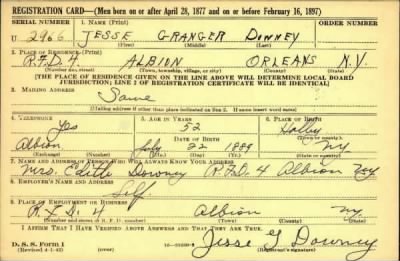 REGISTRATION CARD—(Men born on or after April 28, 1877 and on or before February 16, 1897)
SERIAL NUMBER 1. NAME (Print) ORDER NUMBER
U 2966 JESSE GRANGER DOWNEY
(First) (Middle) (Last)
2. PLACE OF RESIDENCE (Print)
R.F.D. 4 ALBION ORLEANS N.Y.
(Number and street) (Town, township, village, or city) (County) (State)
[THE PLACE OF RESIDENCE GIVEN ON THE LINE ABOVE WILL DETERMINE LOCAL BOARD
JURISDICTION; LINE 2 OF REGISTRATION CERTIFICATE WILL BE IDENTICAL]
3. MAILING ADDRESS
Same
[Mailing address if other than place indicated on line 2. If same insert word same]
4. TELEPHONE 5. AGE IN YEARS 6. PLACE OF BIRTH
Yes 52 Holley
DATE OF BIRTH (Town or county)
Albion July 22 1889 NY
(Exchange) (Number) (Mo.) (Day) (Yr.) (State or country)
7. NAME AND ADDRESS OF PERSON WHO WILL ALWAYS KNOW YOUR ADDRESS
Mrs. Edith Downey R.F.D. 4 Albion
8. EMPLOYER'S NAME AND ADDRESS
Self
9. PLACE OF EMPLOYMENT OR BUSINESS
R.F.D. 4 Albion NY.
(Number and street or R. F. D. number) (Town) (County) (State)
I AFFIRM THAT I HAVE VERIFIED ABOVE ANSWERS AND THAT THEY ARE TRUE.
D. S. S. Form 1
(Revised 4-1-42) (over) Jesse G Downey
(Registrant's signature)